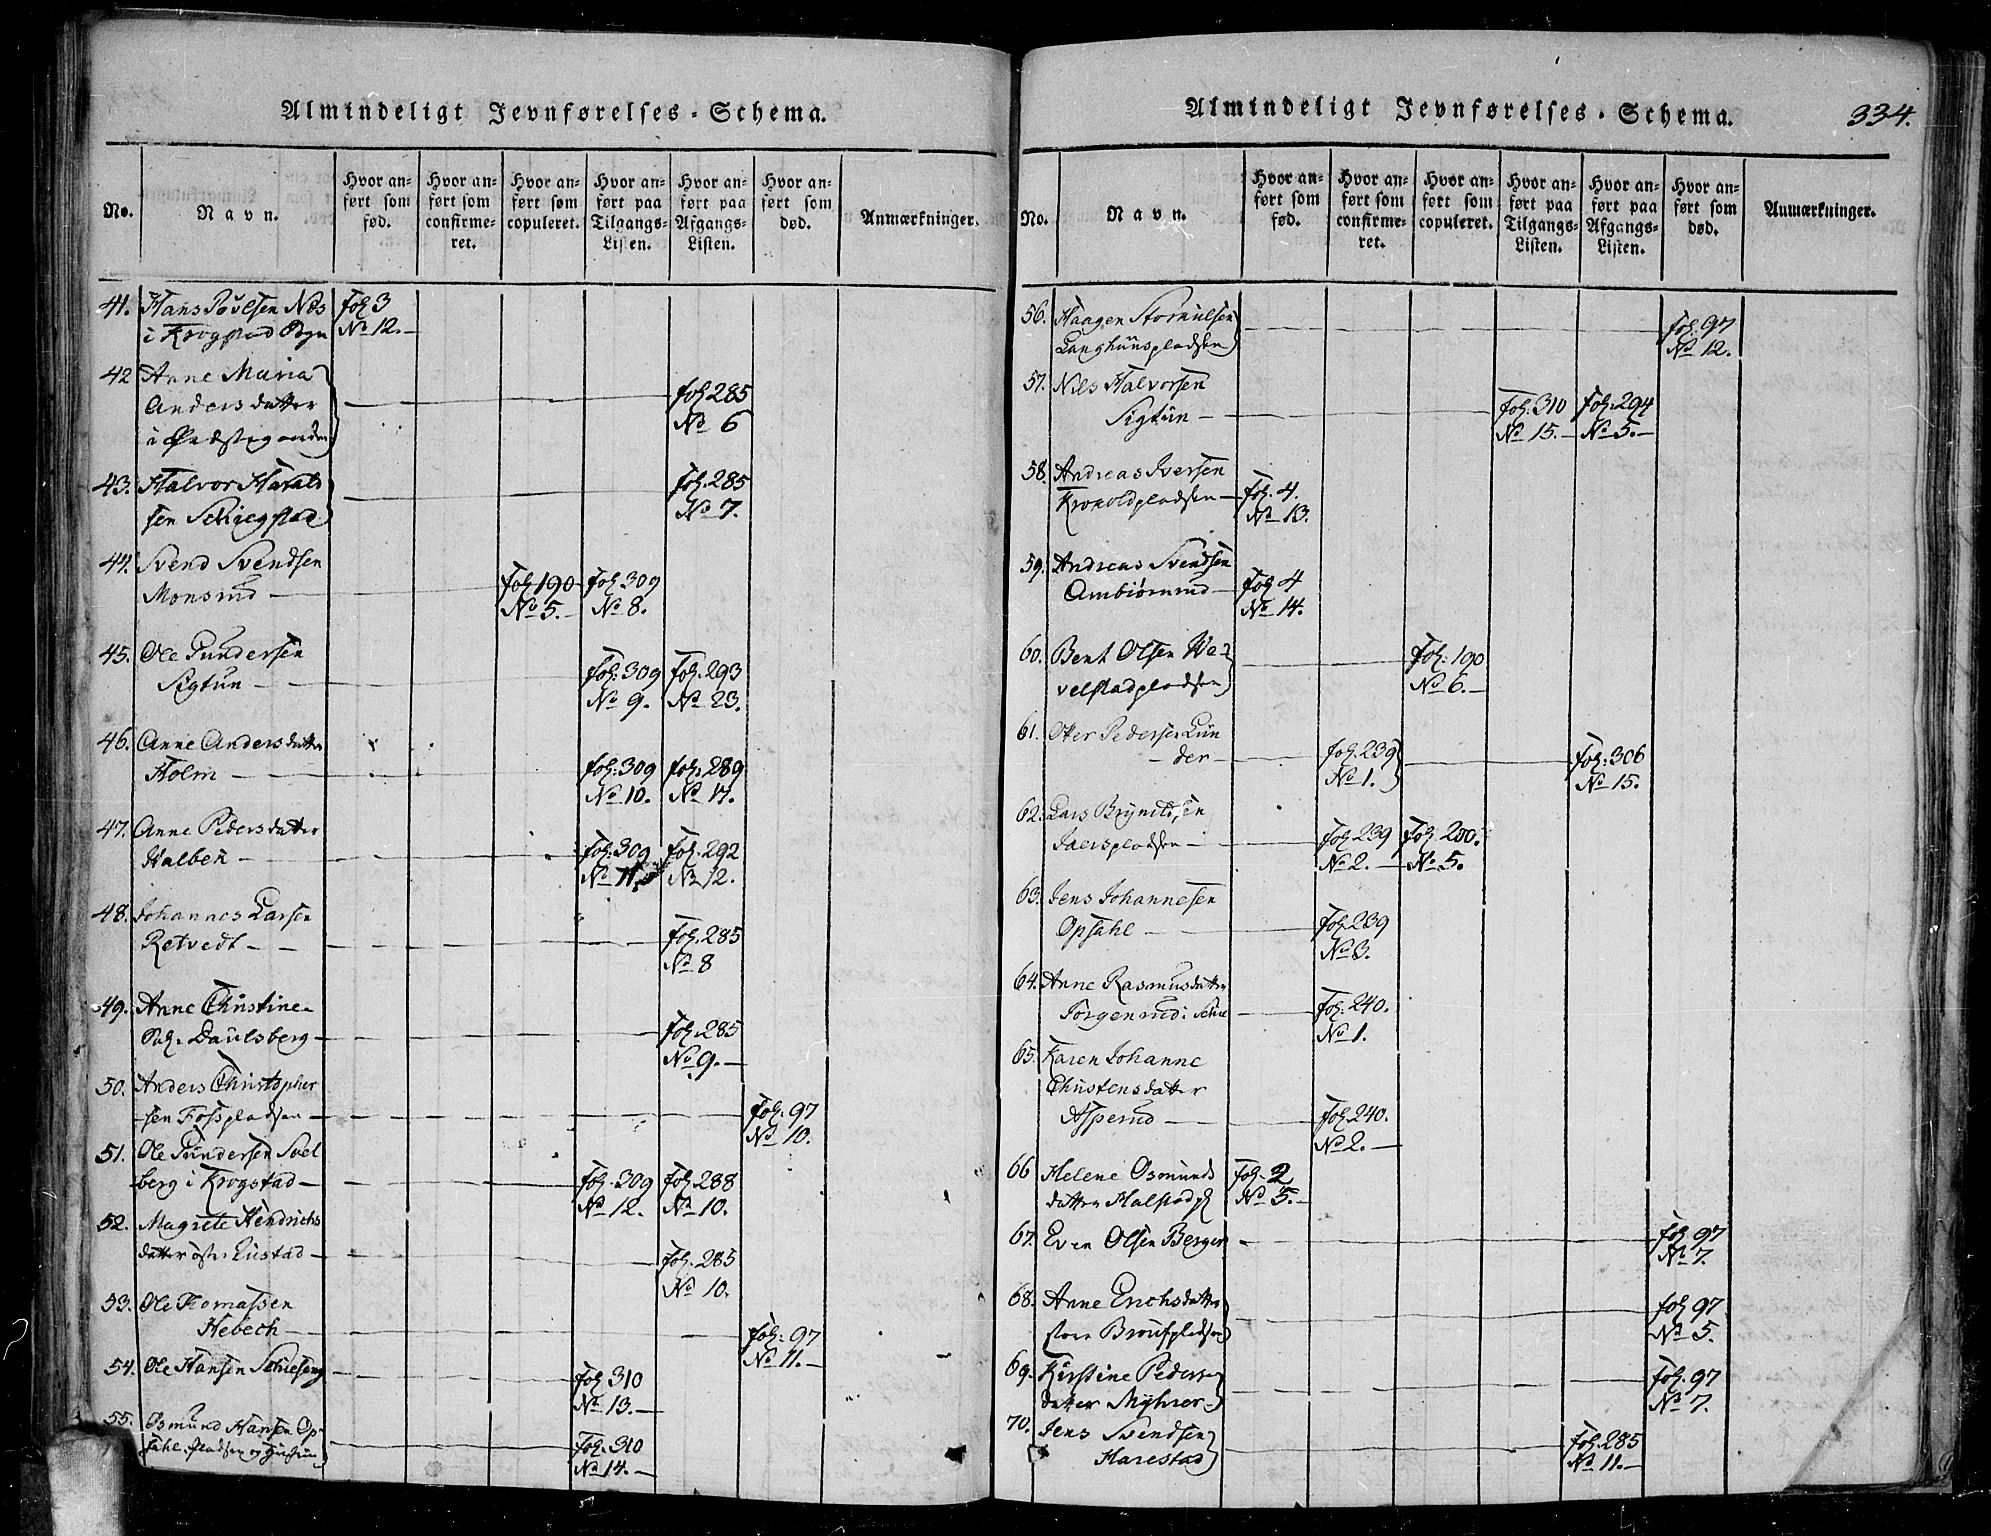 Almindeligt Jevnførelses-Schema.
No.
Navn.
Hvor an-
ført som
fød.
Hvor an-
ført som
confirme-
ret.
Hvor an-
ført som
copuleret.
Hvor an-
ført paa
Tilgangs-
Listen.
Hvor an-
ført paa
Afgangs-
Listen.
Hvor an-
ført som
død.
Anmærkninger.
41. Hans Poulsen Nes fol 3
i Krogstad Sogn No 12.
42 Anne Maria
Anders datter fol 285
i No 6
43. Halvor Harald fol. 285
sen No 7.
44. Svend Svendsen
Monsrud fol 190 fol. 309
No 5. No 8.
45. Ole Gundersen
Sigtun fol. 309 fol. 293
No 9. No 23.
46. Anne Anders datter
Holm fol. 309 fol. 289
No 10. No 17.
47. Anne Peders datter
fol. 309 fol. 292
No 11. No 12.
48. Johannes Larsen
Retvedt fol. 285
No 8
49. Anne Christine
Daulsberg fol. 285
No 9.
50. Anders Christopher
sen Fosspladsen fol. 97
No 10.
51. Ole Gundersen Svel
berg i Krogstad fol. 309 fol. 288
No 12. No 10.
52. Magrete Hendrichs
datter fol. 285
No 10.
53. Ole Thomassen
Hebech fol. 97
No 11.
54. Ole Hansen fol 310
No 13.
55. Osmund Hansen Op-
sahl pladsen og fol. 310
No 14.
Almindeligt Jevnførelses-Schema.
334.
No.
Navn.
Hvor an-
ført som
fød.
Hvor an-
ført som
confirme-
ret.
Hvor an-
ført som
copuleret.
Hvor an-
ført paa
Tilgangs-
Listen.
Hvor an-
ført paa
Afgangs-
Listen.
Hvor an-
ført som
død.
Anmærkninger.
56. Haagen fol. 97
Langhuuspladsen No 12.
57. Nils Halvorsen
Sigtun fol. 310 fol. 294
No 15. No 5.
58. Andreas Iversen
fol. 4.
No 13.
59. Andreas Svendsen
Ambiørnrud fol 4
No 14.
60. Bent Olsen We- fol. 190
velstadpladsen No 6.
61. Otter Pedersen Lun
der fol. 239 fol. 306
No 1. No 15.
62. Lars Brynildsen
fol. 239 fol. 200.
No 2. No 5.
63. Jens Johannesen
Opsahl fol. 239
No 3.
64. Anne Rasmusdatter
fol. 240.
No 1.
65. Karen Johanne
Christensdatter
Asperud fol. 240.
No 2.
66 Helene Osmunds fol. 2
datter No 5.
67. Even Olsen Berger fol. 97
No 7.
68. Anne Erichsdatter fol. 97
No 5.
69. Kirstine Peders fol. 97
datter Myhrer No 7.
70. Jens Svendsen fol. 285
Harestad No 11.